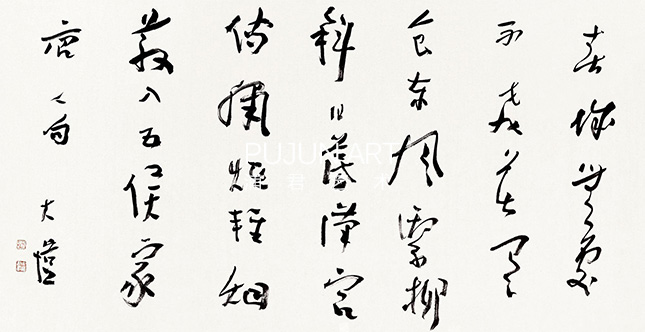 春城無處
不飛花寒
食東風御柳
斜日暮漢宮
傳蠟燭輕烟
散入五侯家
唐人句 大
PUJUN ART